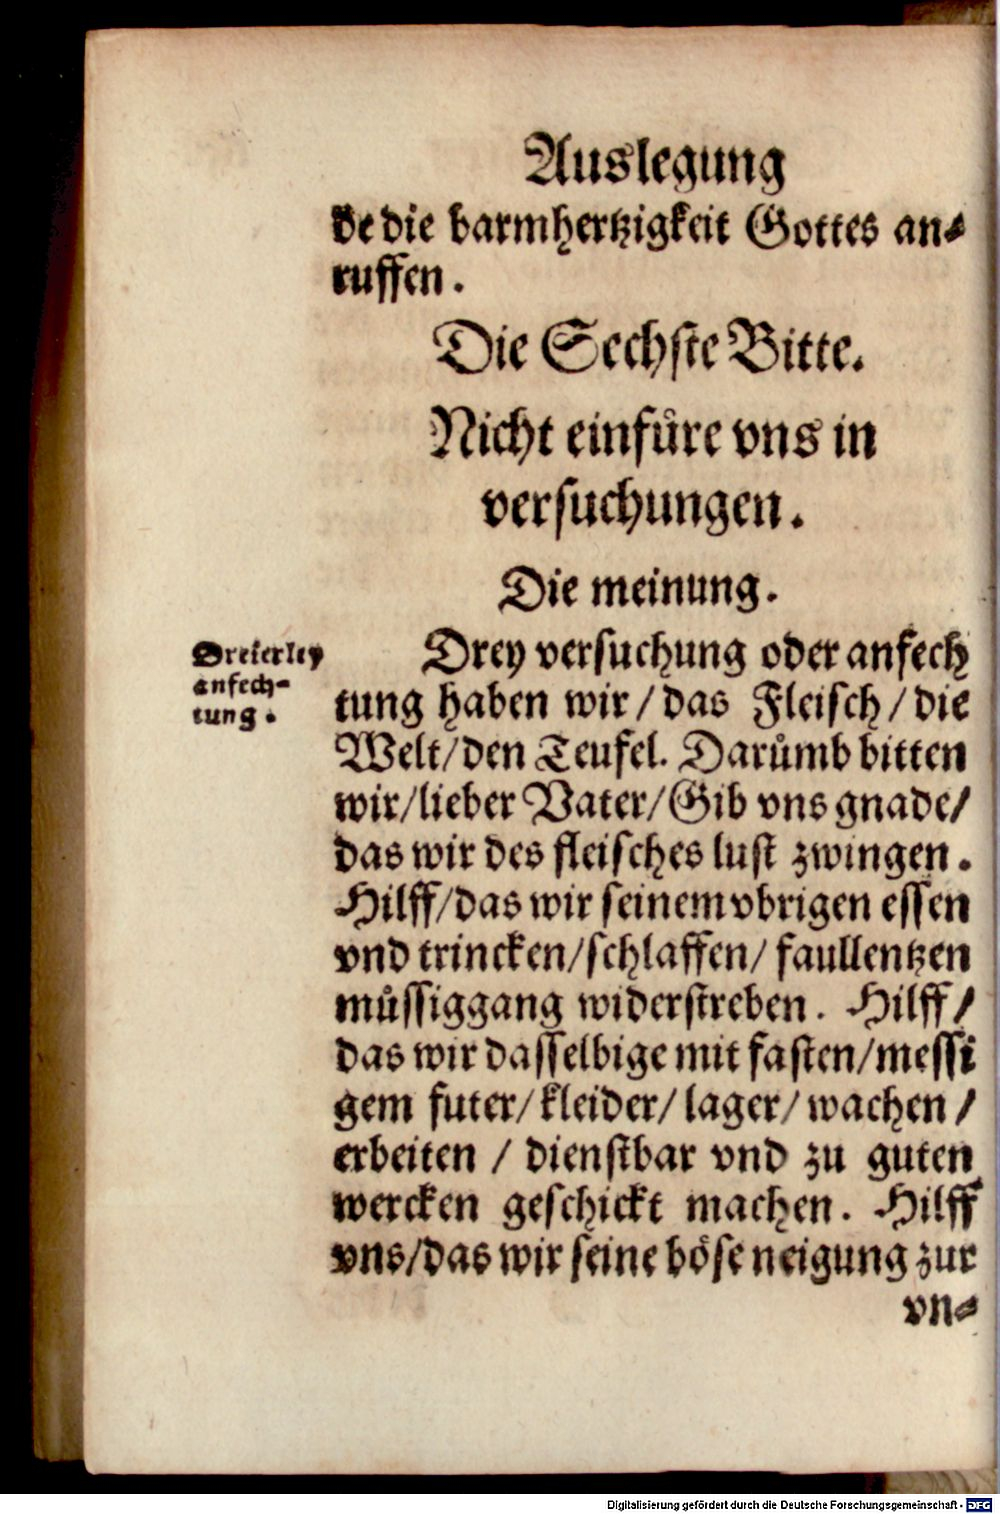 Auslegung
de die barmhertzigkeit Gottes an⸗
ruffen.
Die Sechste Bitte.
Nicht einfuͤre vns in
versuchungen.
Die meinung.
Dreierley
anfech-
tung.
Drey versuchung oder anfech
tung haben wir/das Fleisch/die
Welt/den Teufel. Daruͤmb bitten
wir/lieber Vater/Gib vns gnade/
das wir des fleisches lust zwingen.
Hilff/das wir seinem vbrigen essen
vnd trincken/schlaffen/faullentzen
muͤssiggang widerstreben. Hilff/
das wir dasselbige mit fasten/messi
gem futer/kleider/lager/wachen/
erbeiten/dienstbar vnd zu guten
wercken geschickt machen. Hilff
vns/das wir seine boͤse neigung zur
vn⸗
Digitalisierung gefördert durch die Deutsche Forschungsgemeinschaft - DFG